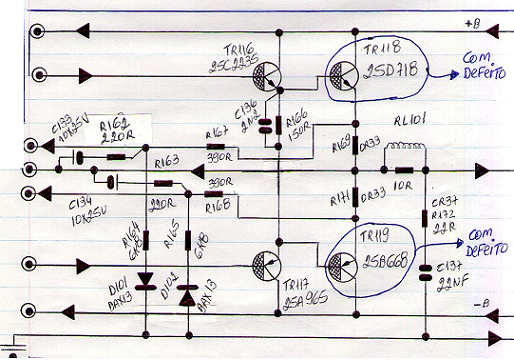 +B
TR116
2SC2235
TR118
2SD718
COM
DEFEITO
C133
10X25V
R162
220R
C136
2N2
R166
150R
RL101
R167
390R
R169
0R33
R163
220R
390R
R168
10R
C134
10X25V
R171
0R33
CR37
R172
22R
R164
6K8
R165
6K8
TR119
2SB668
COM
DEFEITO
D101
BAX13
D102
BAX13
TR117
2SA965
C137
22NF
-B